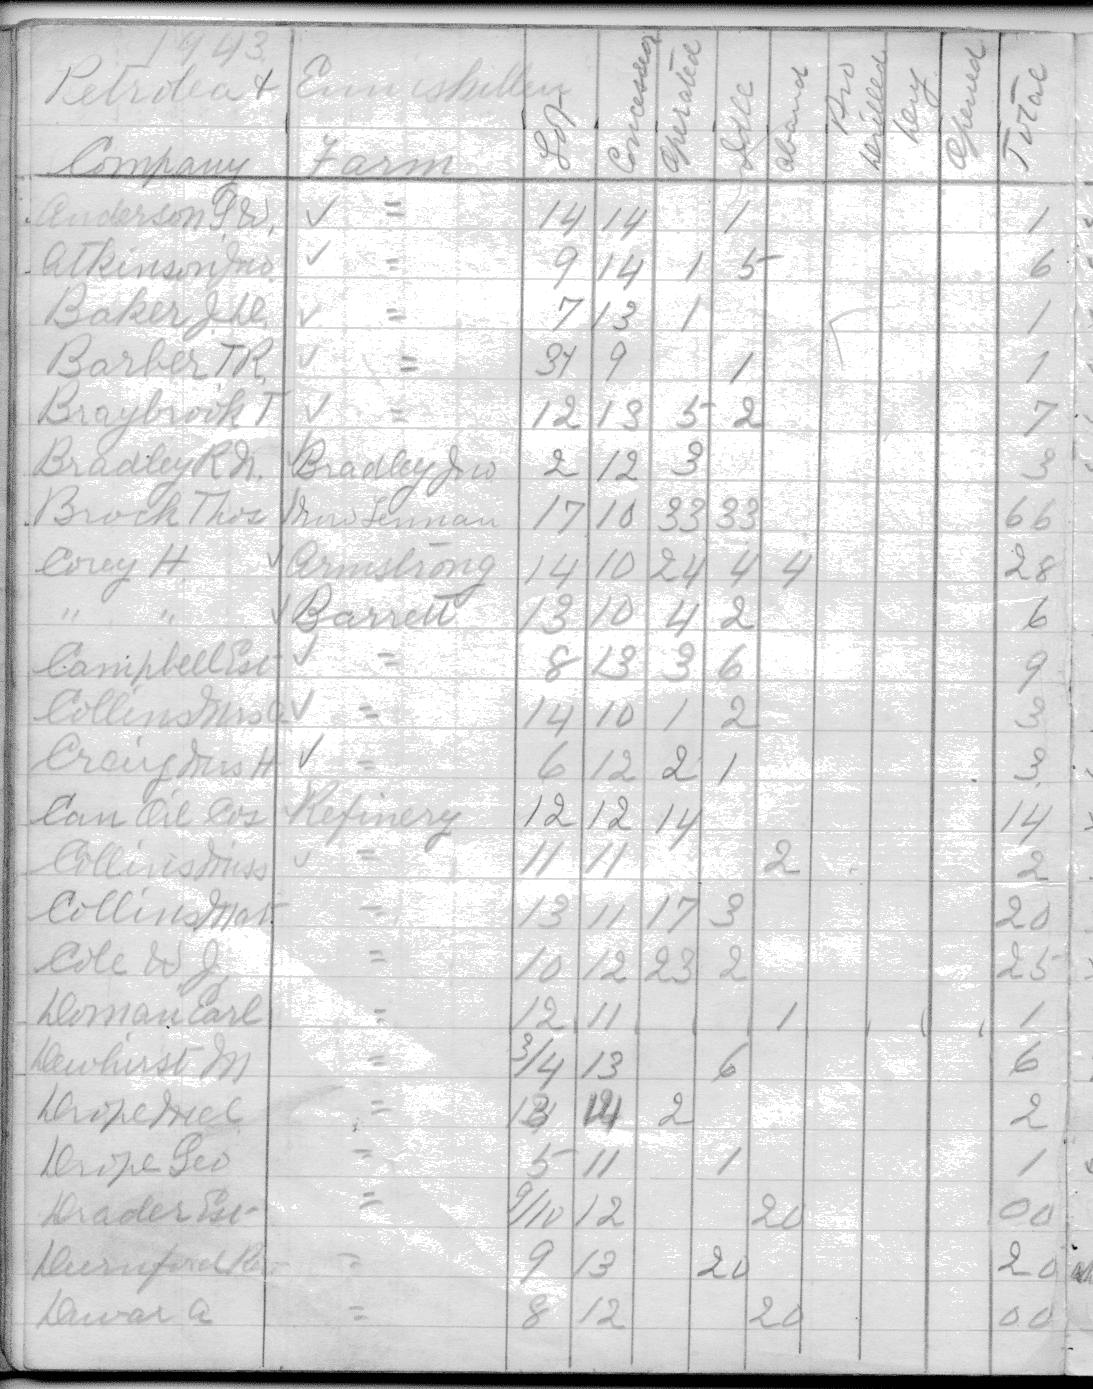 1943
Petrolea & Enniskillen
Company Farm Lot Concession Operated Idle Aband Pro Drilled Dry Opened Total
Anderson G.W. ✓ = 14 14 1 1
Atkinson Jno. ✓ = 9 14 1 5 6
Baker J.D. ✓ = 7 13 1 1
Barber T.R. ✓ = 9 1 1
Braybrook T ✓ = 12 13 5 2 7
Bradley R.M. ✓ Bradley Jno 2 12 3 3
Brock Thos 17 10 33 33 66
Corey H ✓ Armstrong 14 10 24 4 4 28
" " ✓ Barrett 13 10 4 2 6
Campbell Est ✓ = 8 13 3 6 9
Collins Mrs ✓ = 14 10 1 2 3
Craig Mrs H ✓ = 6 12 2 1 3
Can Oil Cos Refinery 12 12 14 14
Collins Miss ✓ = 11 11 2 2
Collins Mat = 13 11 17 3 20
Cole W J. = 10 12 23 2 25
Doman Earl = 12 11 1 1
Dewhirst M = 3/4 13 6 6
Drope = 2 2
Drope Geo = 5 11 1 1
Drader Est = 9/10 12 20 00
Durnford = 9 13 20 20
Dewar A = 8 12 20 00